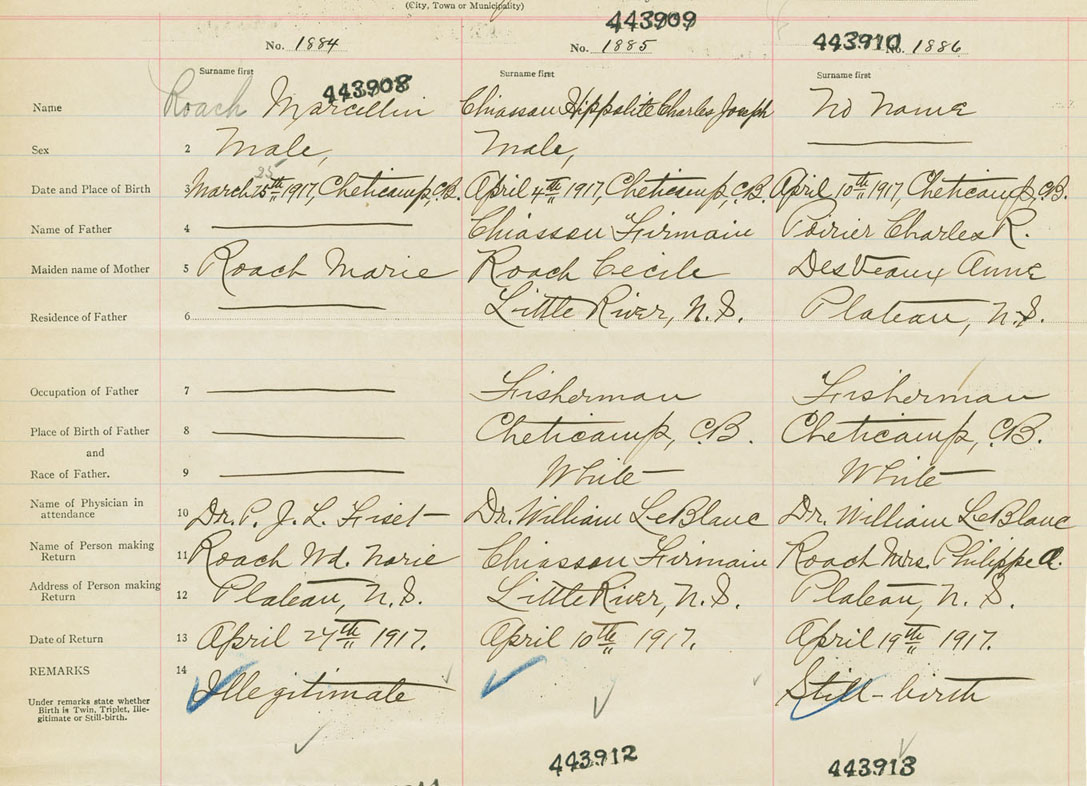 (City, Town or Municipality)
443909
No. 1884 No. 1885 443910 No. 1886
Surname first Surname first Surname first
443908
Name Roach Marcellin Chiasson Hippolite Charles Joseph No Name
Sex 2 Male, Male,
25
Date and Place of Birth 3 March 25th 1917, Cheticamp, C.B. April 4th 1917, Cheticamp, C.B. April 10th 1917, Cheticamp, C.B.
Name of Father 4 Chiasson Firmain Poirier Charles R.
Maiden name of Mother 5 Roach Marie Roach Cecile DesVeaux Anne
Residence of Father 6 Little River, N.S. Plateau, N.S.
Occupation of Father 7 Fisherman Fisherman
Place of Birth of Father 8 Cheticamp, C.B. Cheticamp, C.B.
and
Race of Father. 9 White White
Name of Physician in
attendance 10 Dr. P. J. L. Fiset Dr. William LeBlanc Dr. William LeBlanc
Name of Person making
Return 11 Roach Wd. Marie Chiasson Firmain Roach Mrs. Philippe A.
Address of Person making
Return 12 Plateau, N.S. Little River, N.S. Plateau, N.S.
Date of Return 13 April 27th 1917. April 10th 1917. April 19th 1917.
REMARKS 14 Illegitimate Still-birth
Under remarks state whether
Birth is Twin, Triplet, Ille-
gitimate or Still-birth.
443912 443913